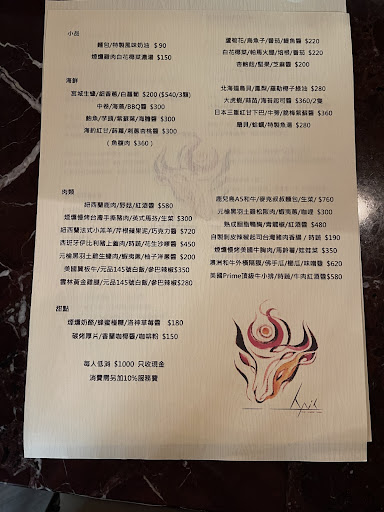 小品
麵包/特製風味奶油 $90
煙燻雞肉白花椰菜濃湯 $150
蘆筍花/烏魚子/番茄/鯷魚醬 $220
白花椰菜/帕馬火腿/培根/番茄 $220
杏鮑菇/堅果/芝麻醬 $200
海鮮
宮城生蠔/胡香蔥/白蘿蔔 $200 ($540/3顆)
中卷/海蔥/BBQ醬 $300
鮑魚/芋頭/紫蘇葉/海膽醬 $300
海釣紅甘/蒔蘿/刺蔥杏桃醬 $300
( 魚腹肉 $360 )
北海道扇貝/鳳梨/羅勒椰子綠油 $280
大虎蝦/絲瓜/海苔起司醬 $360/2隻
日本三重紅甘下巴/牛蒡/脆梅紫蘇醬 $360
龍貝/蛤蠣/特製魚湯 $280
肉類
紐西蘭鹿肉/野菇/紅酒醬 $580
煙燻慢烤台灣手撕豬肉/英式馬芬/生菜 $300
紐西蘭法式小羊排/芹根襪果泥/巧克力醬 $720
西班牙伊比利豬上蓋肉/時蔬/花生沙嗲醬 $450
元榆黑羽土雞生腿肉/蝦夷蔥/柚子洋蔥醬 $200
美國翼板牛/元品145號白飯/參巴辣椒$350
雲林黃金雞腿/元品145號白飯/參巴辣椒$280
鹿兒島A5和牛/麥克叔叔麵包/生菜 $760
元榆黑羽土雞松阪肉/蝦夷蔥/咖哩 $300
熟成胭脂鴨胸/青蘋椒/紅酒醬 $480
自製剝皮辣椒起司台灣豬肉香腸 / 時蔬 $190
煙燻慢烤美國牛胸肉/馬鈴薯/娃娃菜 $350
澳洲和牛外橫隔膜/佛手瓜/櫛瓜/味噌醬 $620
美國Prime頂級牛小排/時蔬/牛肉紅酒醬$580
甜點
煙燻奶酪/蜂蜜檸檬/洛神草莓醬 $180
碳烤厚片/香蘭咖椰醬/咖啡粉 $150
每人低消 $1000 只收現金
消費需另加10%服務費